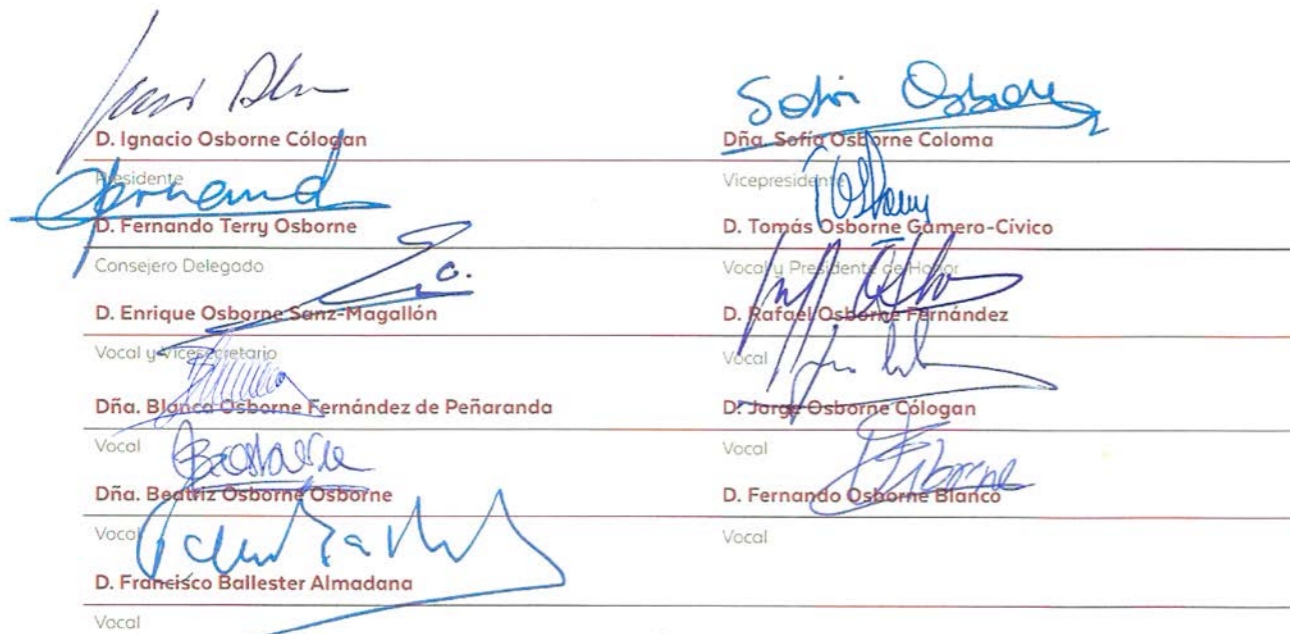 D. Ignacio Osborne Cólogan
Presidente
D. Fernando Terry Osborne
Consejero Delegado
D. Enrique Osborne Sanz-Magallón
Vocal y Vicesecretario
Dña. Blanca Osborne Fernández de Peñaranda
Vocal
Dña. Beatriz Osborne Osborne
Vocal
D. Francisco Ballester Almadana
Vocal
Dña. Sofía Osborne Coloma
Vicepresidente
D. Tomás Osborne Gamero-Cívico
Vocal y Presidente de Honor
D. Rafael Osborne Fernández
Vocal
D. Jorge Osborne Cólogan
Vocal
D. Fernando Osborne Blanco
Vocal